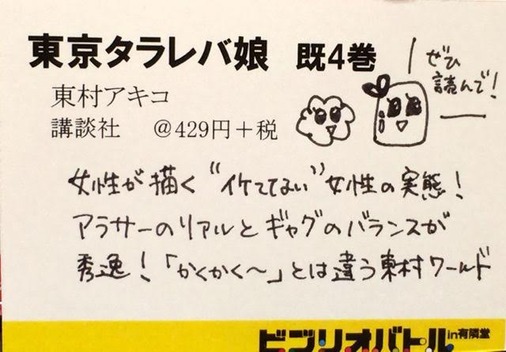 東京タラレバ娘 既4巻
東村アキコ
講談社 @429円+税
ぜひ
読んで!
女性が描く“イケてない”女性の実態!
アラサーのリアルとギャグのバランスが
秀逸!「かくかく〜」とは違う東村ワールド
ビブリオバトル in有隣堂